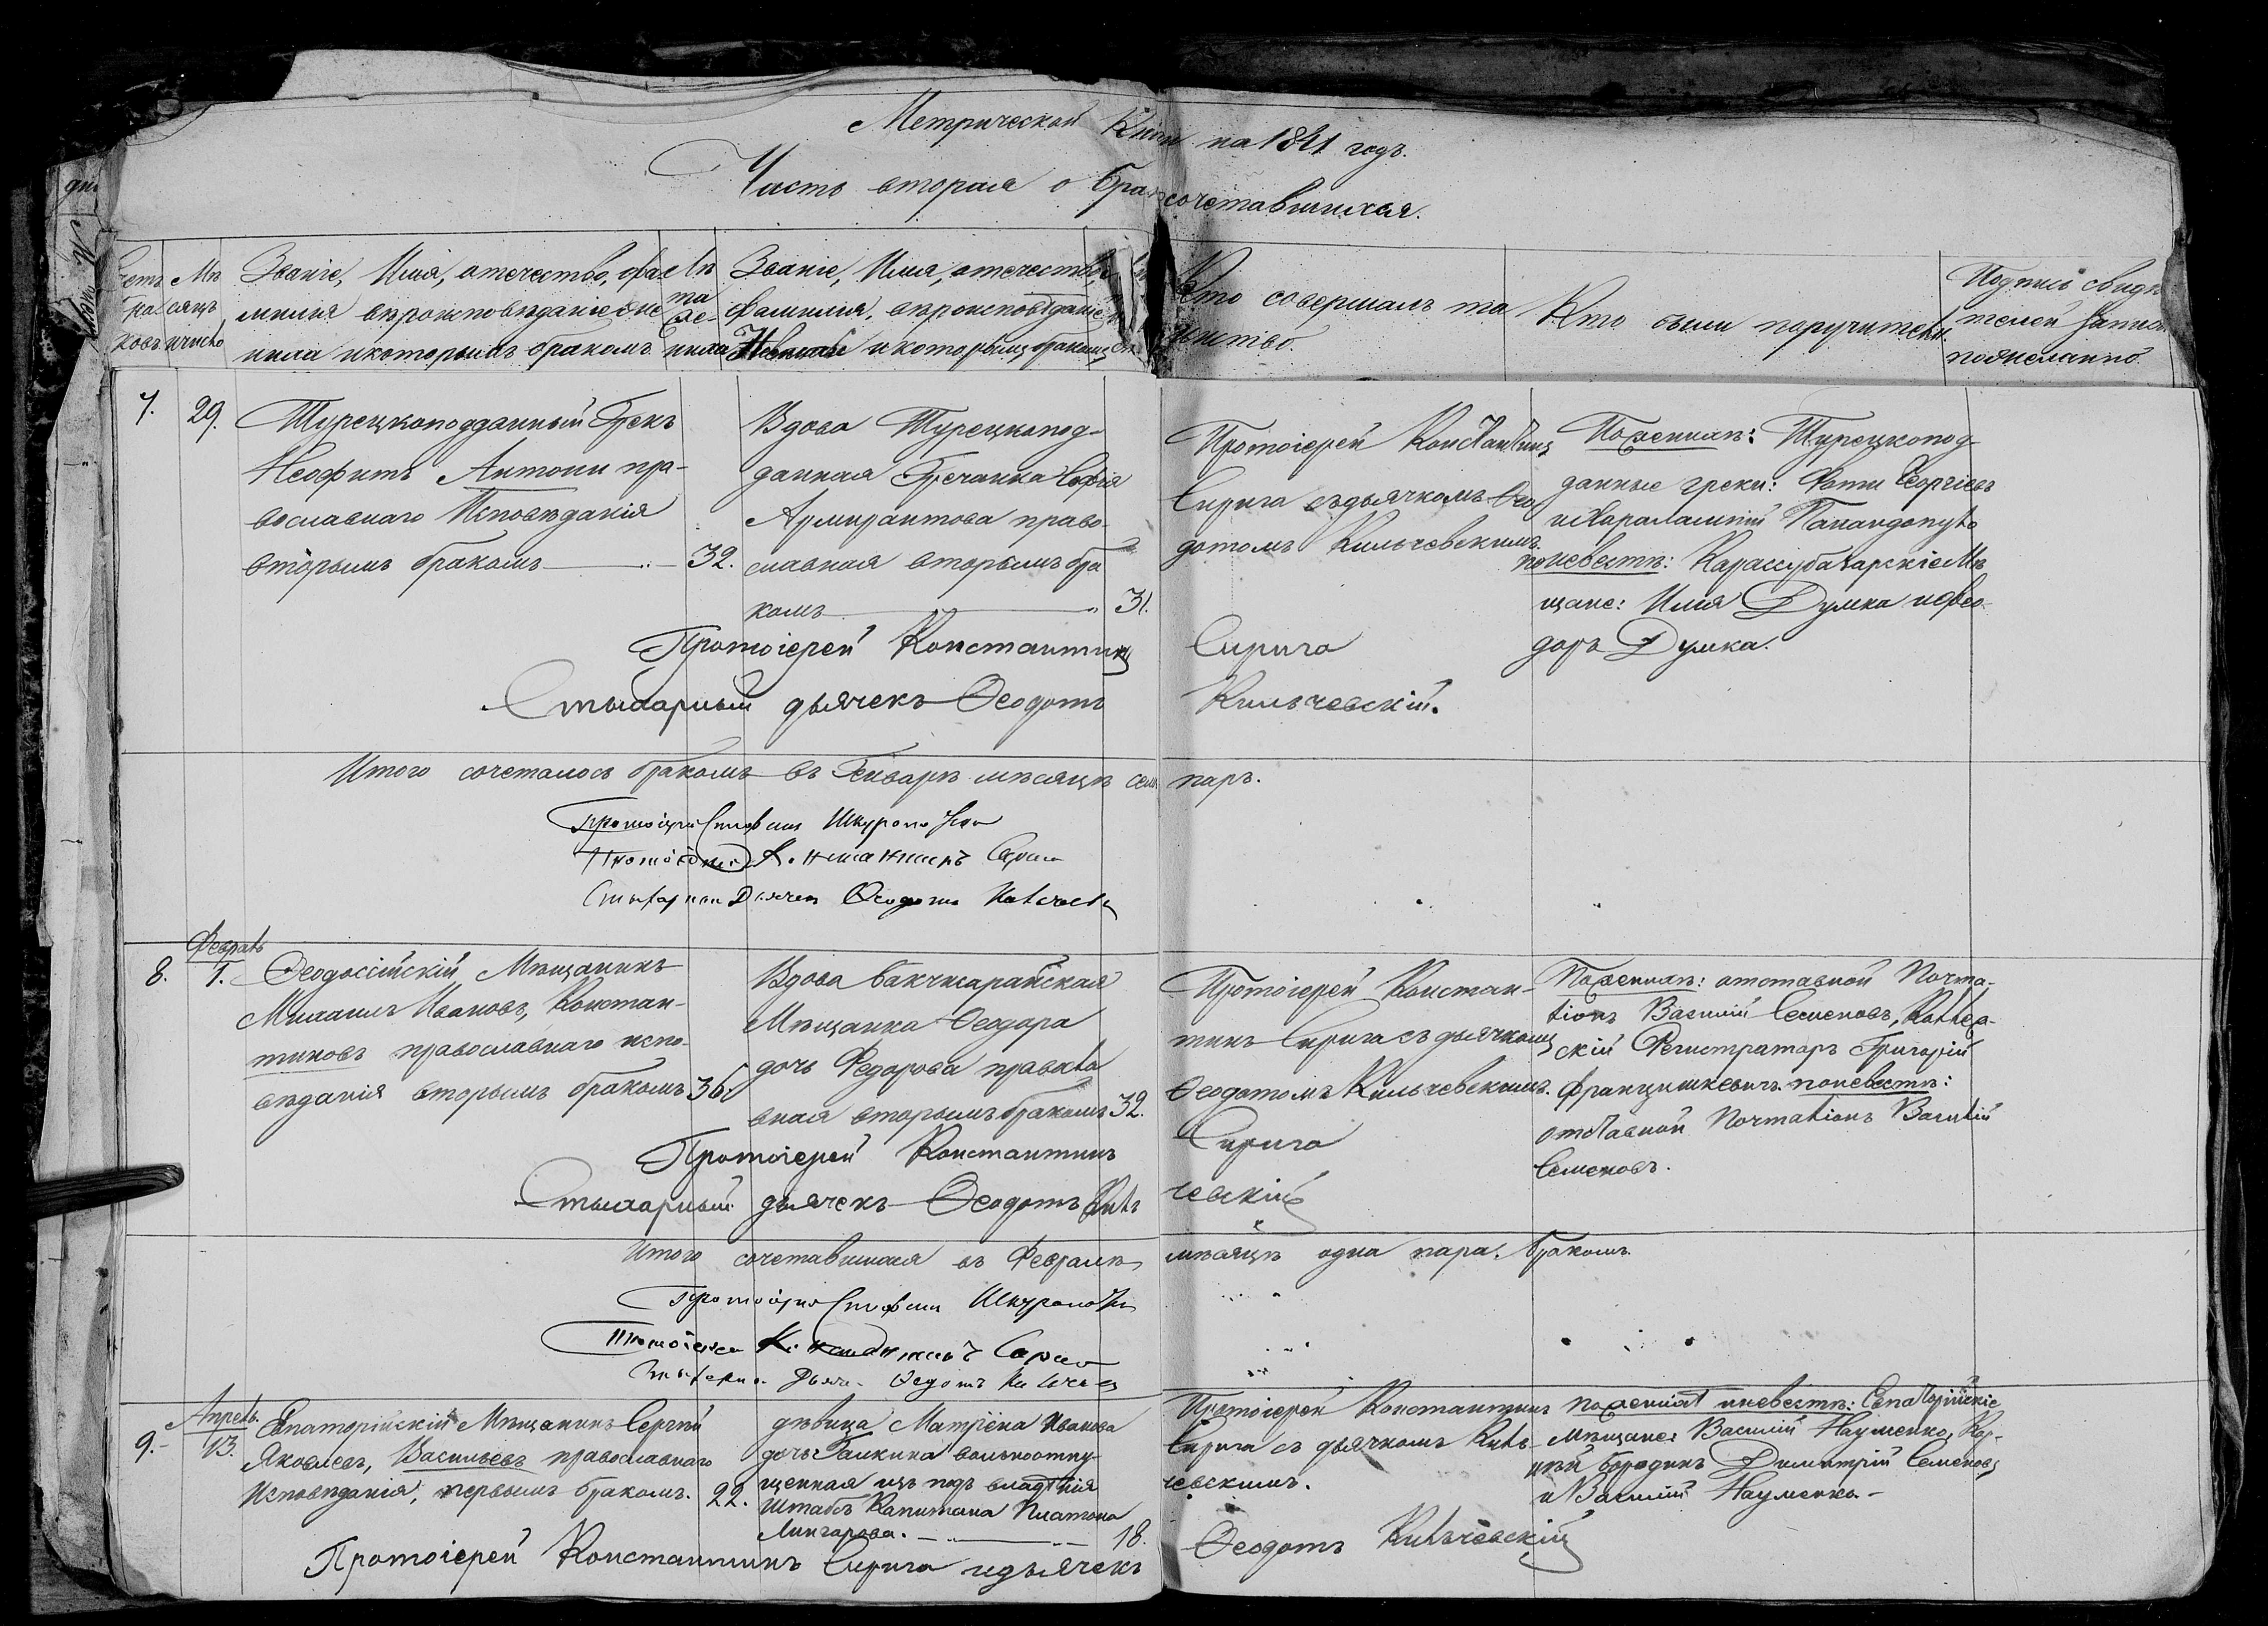 Метрической Книги на 1841 годъ.
Часть вторая о бракосочетавшихся.
Счетъ браковъ
Мѣсяцъ и число
Званіе, Имя, отечество, фамилія
миліи вѣроисповѣданіе жениха и которымъ бракомъ
Лѣта жениха
Званіе, Имя, отечество,
фамилия, вѣроисповѣданіе
Невѣсты и которымъ бракомъ
Кто совершалъ та
инство.
Кто были поручители.
Подпись свидѣ
телей записи
по желанію
7. 29.
Турецкоподданный Грекъ
Неофитъ Антони пра-
вославнаго Исповѣданія
вторымъ бракомъ 32.
Вдова Турецкопод-
данная Гречанка Софія
Армирантова право-
славная вторымъ бра
комъ 31.
Протоіерей Константинъ
Сирига съ дьячкомъ Ѳео
дотомъ Кильчевскимъ.
По женихѣ: Турецкопод-
данные греки: Фоти Георгіевъ
и Харалампій Папандопуло
по невѣстѣ: Карасубазарскіе Мѣ
щане: Илія Думка и Ѳео-
доръ Думка.
Протоіерей Константинъ Сирига
Стихарный дьячекъ Ѳеодотъ Кильчевскій.
Итого сочеталось бракомъ въ Генварѣ мѣсяцѣ семь паръ.
Протоіерей
Протоіерей Константинъ Сирига
Стихарный Дьячекъ Ѳеодотъ Кильчевскій
Февраль
8. 1.
Ѳеодосійскій Мѣщанинъ
Михаилъ Ивановъ, Констан-
тиновъ православнаго испо-
вѣданія вторымъ бракомъ 36.
Вдова бакчисарайская
Мѣщанка Ѳеодора
дочь Федорова правосла
вная вторымъ бракомъ 32.
Протоіерей Констан-
тинъ Сирига съ дьячкомъ
Ѳеодотомъ Кильчевскимъ.
По женихѣ: отставной Почта-
ліонъ Василій Семеновъ, Коллеж-
скій Регистраторъ Григорій
Францишкевичъ. по невѣстѣ:
отставной Почталіонъ Василій
Семеновъ.
Протоіерей Константинъ Сирига
Стихарный дьячекъ Ѳеодотъ Кильчевскій
Итого сочетавшихся въ Февралѣ мѣсяцѣ одна пара. бракомъ.
Протоіерей
Протоіерей Константинъ Сирига
Стихарный Дьячекъ Ѳедотъ Кильчевскій
Апрель.
9. 13.
Евпаторійскій Мѣщанинъ Сергѣй
Яковлевъ, Васильевъ православнаго
Исповѣданія, первымъ бракомъ. 22.
дѣвица Матрёна Иванова
дочь Галкина вольноотпу-
щенная изъ подъ владѣнія
Штабсъ Капитана Платона
18.
Протоіерей Константинъ
Сирига съ дьячкомъ Киль-
чевскимъ.
По женихѣ и невѣстѣ: Евпаторійскіе
Мѣщане: Василій Науменко, Кор-
нѣй бородинъ Димитрій Семеновъ
и Василій Науменко.
Протоіерей Константинъ Сирига и дьячекъ Ѳеодотъ Кильчевскій